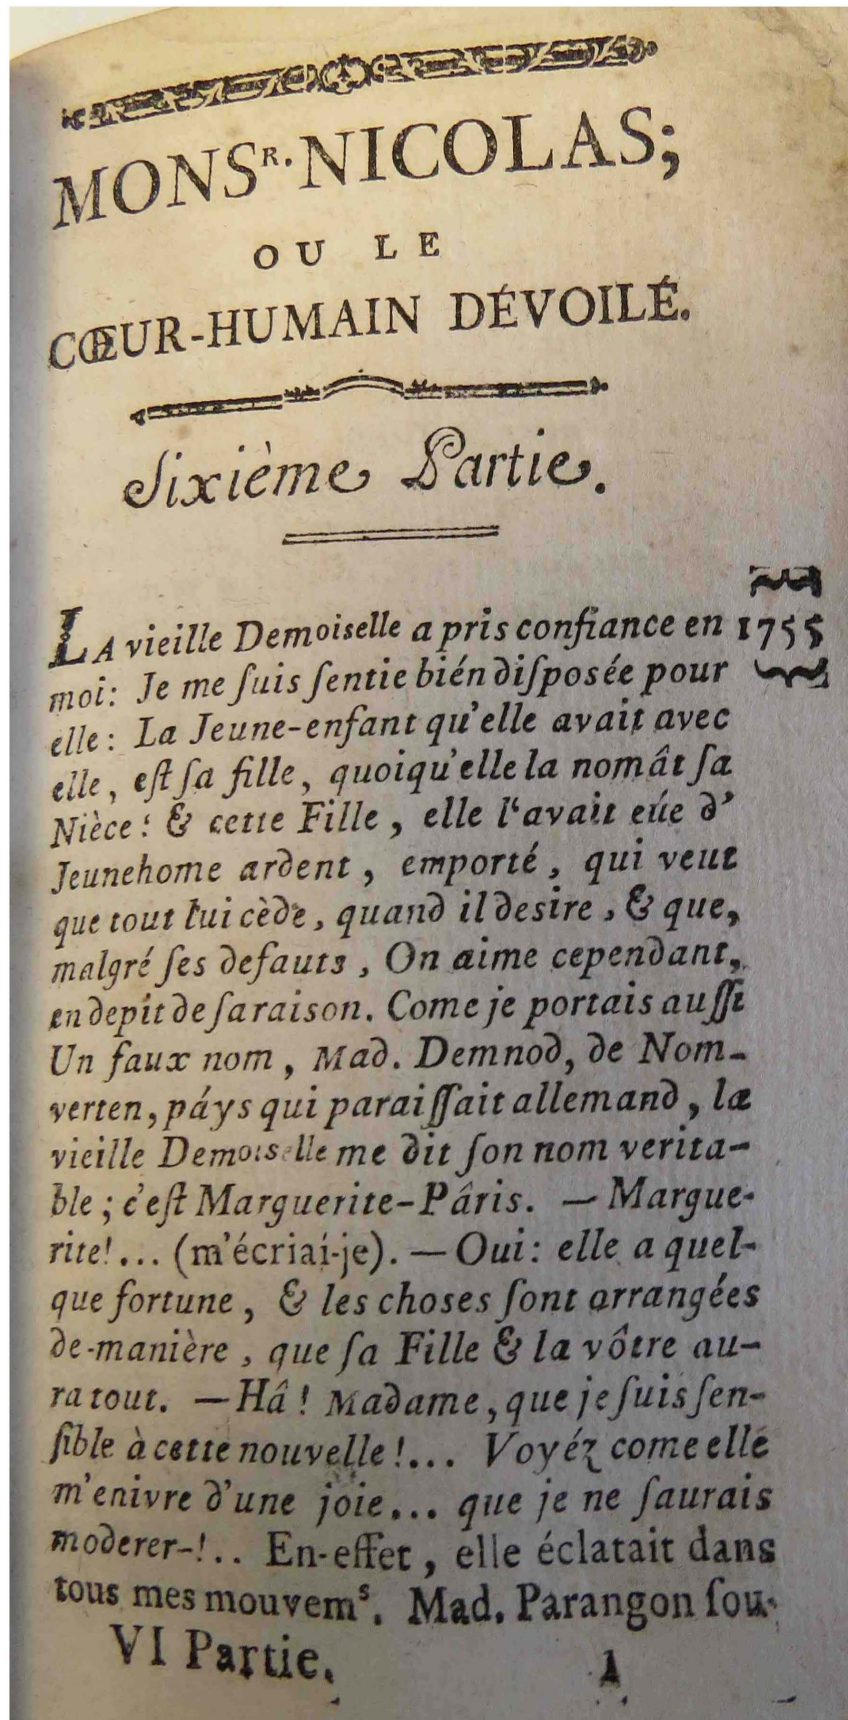 MONSR. NICOLAS;
OU LE
CŒUR-HUMAIN DÉVOILÉ.
Sixième Partie.
LA vieille Demoiselle a pris confiance en 1755
moi: Je me ſuis ſentie bién diſposée pour
elle: La Jeune-enfant qu'elle avait avec
elle, eſt ſa fille, quoiqu'elle la nomât ſa
Nièce: & cette Fille, elle l'avait eúe d'
Jeunehome ardent, emporté, qui veut
que tout lui cède, quand il desire, & que,
malgré ſes defauts, On aime cependant,
en depit de ſa raison. Come je portais auſſi
Un faux nom, Mad. Demnod, de Nom-
verten, páys qui paraiſſait allemand, la
vieille Demoiselle me dit ſon nom verita-
ble; c'eſt Marguerite-Pâris. — Margue-
rite!... (m'écriai-je). — Oui: elle a quel-
que fortune, & les choses ſont arrangées
de-manière, que ſa Fille & la vôtre au-
ra tout. — Hâ! Madame, que je ſuis ſen-
ſible à cette nouvelle!... Voyéz come elle
m'enivre d'une joie... que je ne ſaurais
moderer-!.. En-effet, elle éclatait dans
tous mes mouvems. Mad. Parangon ſou-
VI Partie. 1